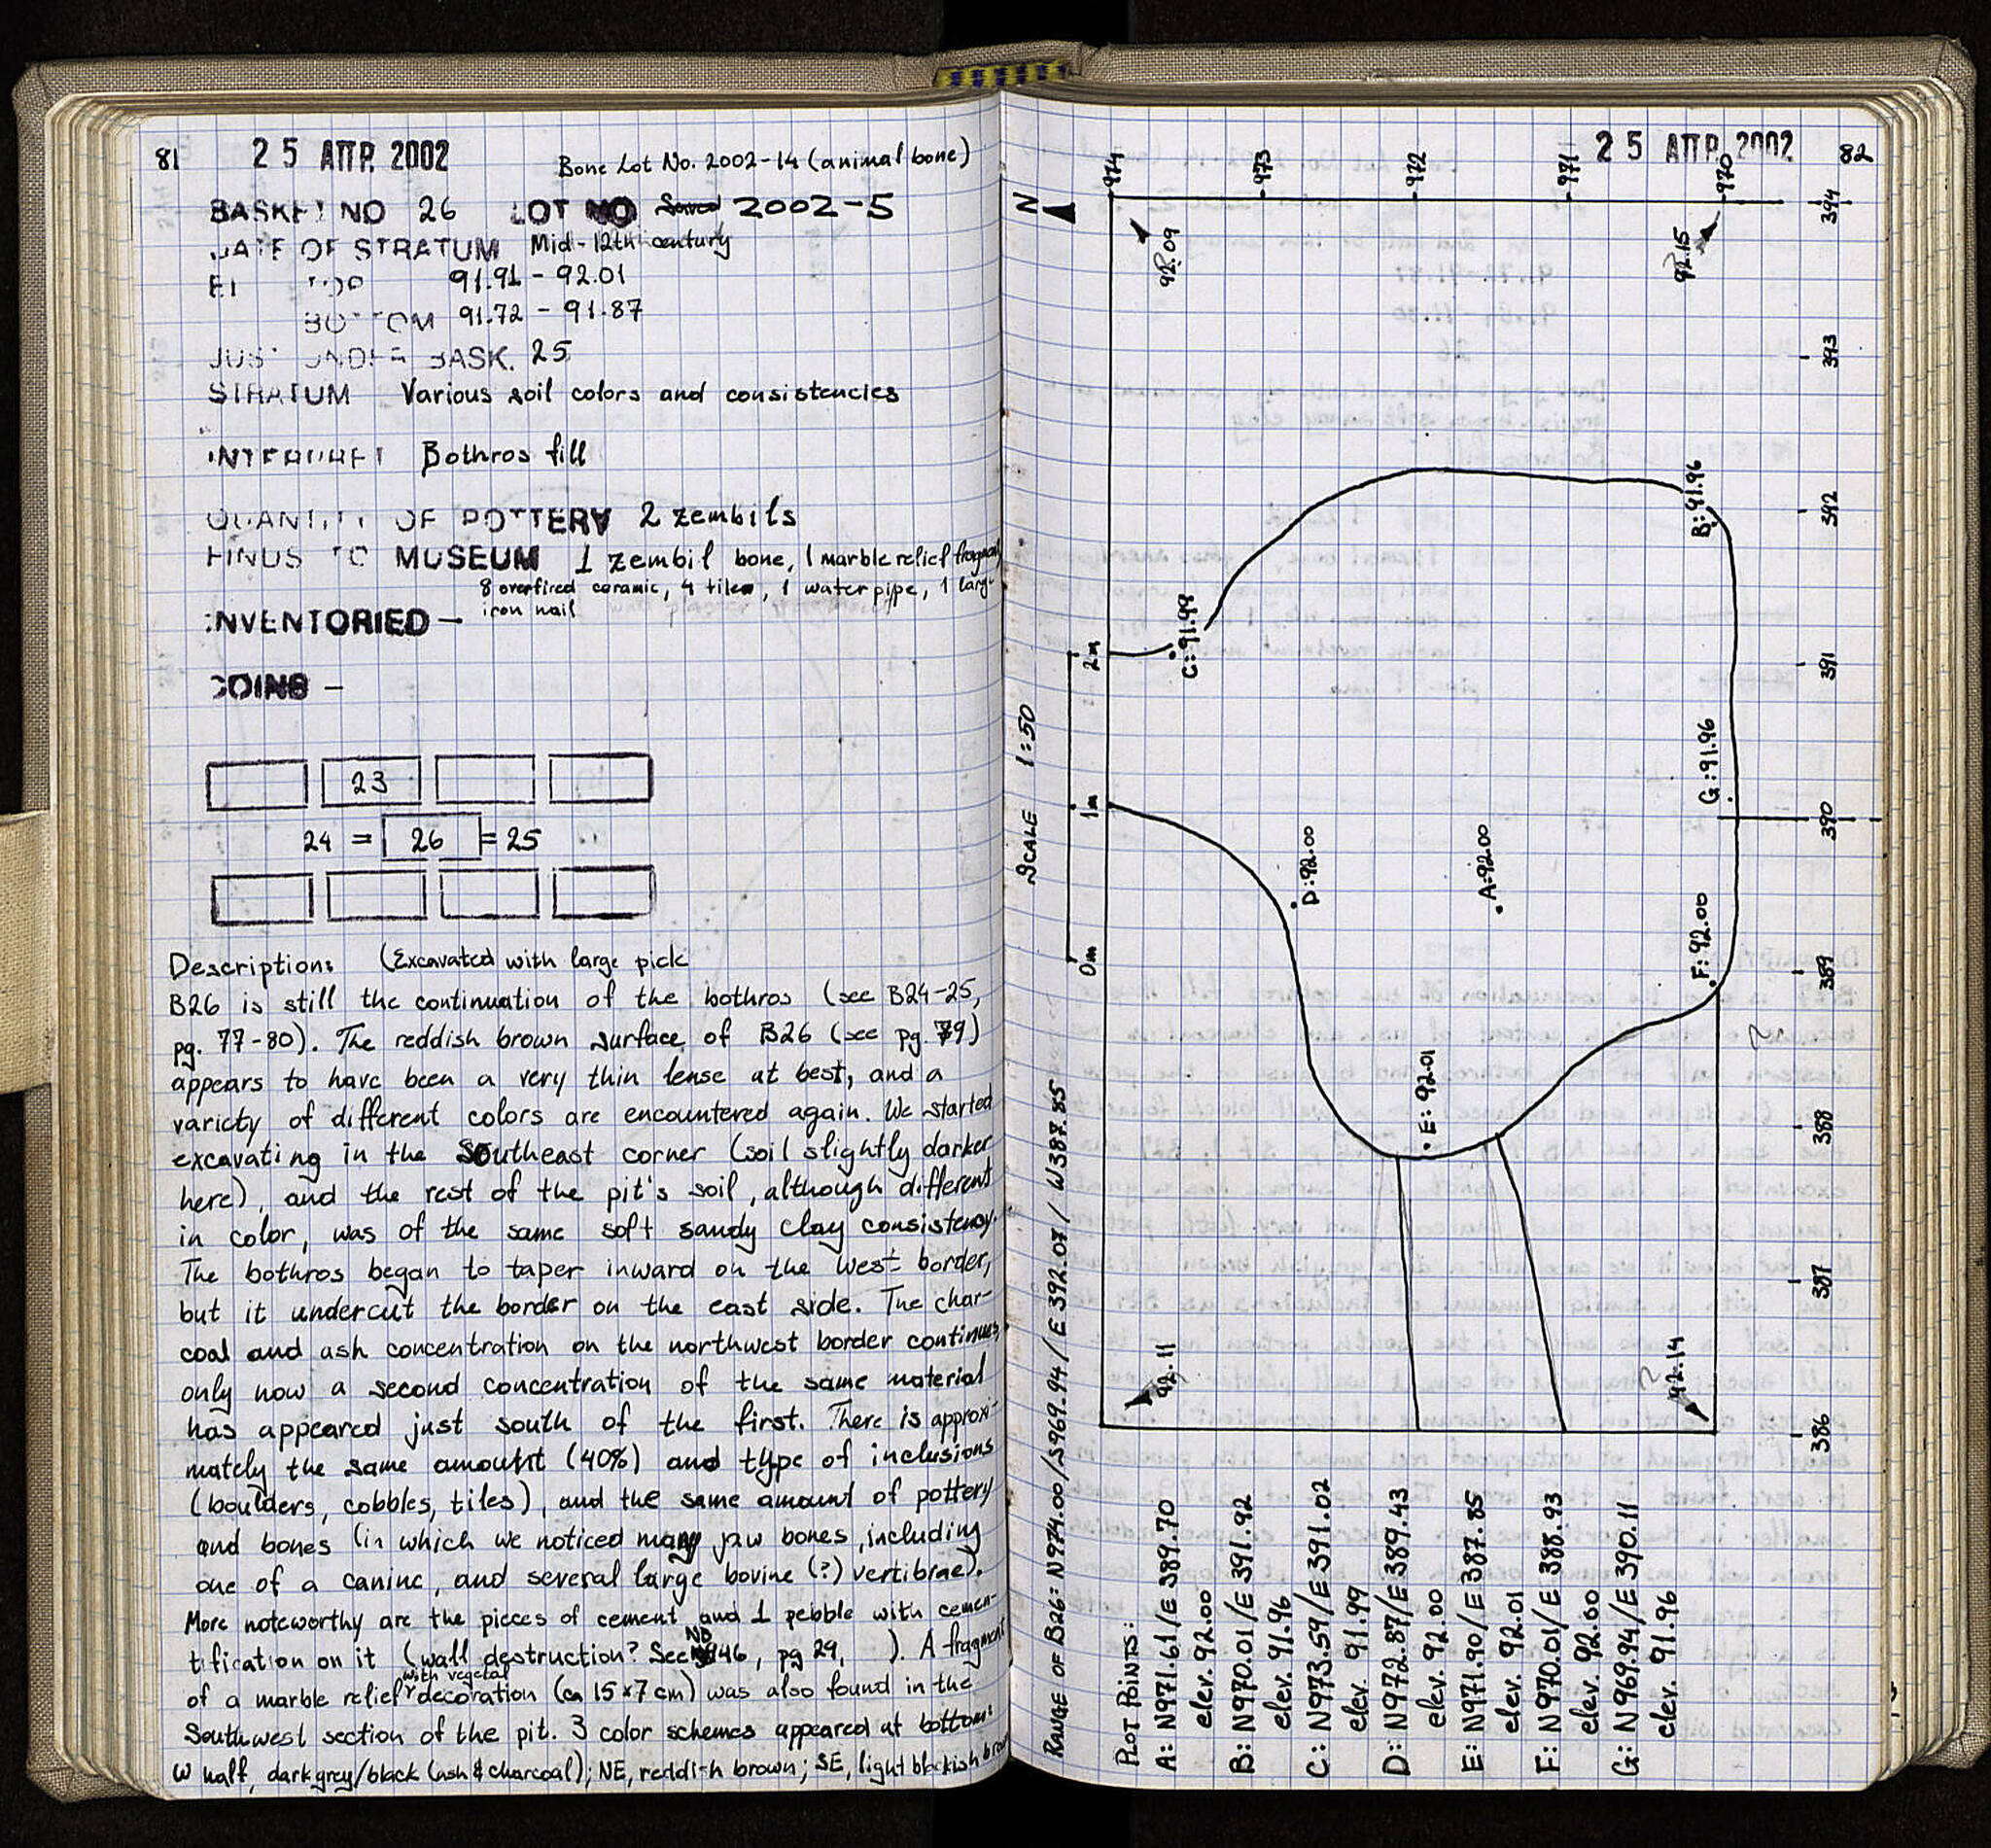 81
25 ΑΠΡ. 2002
Bone Lot No. 2002-14 (animal bone)
BASKET NO 26 LOT NO 2002-5
DATE OF STRATUM Mid-12th century
EL TOP 91.91 - 92.01
BOTTOM 91.72 - 91.87
JUST UNDER BASK. 25
STRATUM Various soil colors and consistencies
INTERPRET Bothros fill
QUANTITY OF POTTERY 2 zembils
FINDS TO MUSEUM 1 zembil bone, 1 marble relief fragment
8 overfired ceramic, 4 tiles, 1 water pipe, 1 large
iron nail
INVENTORIED —
COINS —
23
24 = 26 = 25
Description: (Excavated with large pick
B26 is still the continuation of the bothros (see B24-25,
pg. 77-80). The reddish brown surface of B26 (see pg. 79)
appears to have been a very thin lense at best, and a
variety of different colors are encountered again. We started
excavating in the Southeast corner (soil slightly darker
here), and the rest of the pit's soil, although different
in color, was of the same soft sandy clay consistency.
The bothros began to taper inward on the west border,
but it undercut the border on the east side. The char-
coal and ash concentration on the northwest border continues,
only now a second concentration of the same material
has appeared just south of the first. There is approxi-
mately the same amount (40%) and type of inclusions
(boulders, cobbles, tiles), and the same amount of pottery
and bones (in which we noticed many jaw bones, including
one of a canine, and several large bovine (?) vertibrae).
More noteworthy are the pieces of cement and 1 pebble with cemen-
tification on it (wall destruction? See NB 946, pg 29, ). A fragment
of a marble relief with vegetal decoration (ca 15 x 7 cm) was also found in the
Southwest section of the pit. 3 color schemes appeared at bottom:
W half, dark grey/black (ash & charcoal); NE, reddish brown; SE, light blackish brown
25 ΑΠΡ. 2002
82
N
974
973
972
971
970
394
393
392
391
390
389
388
387
386
92.09
92.15
92.11
92.14
B: 91.96
C: 91.99
G: 91.96
D: 92.00
A: 92.00
F: 92.00
E: 92.01
SCALE 1:50
0m
1m
2m
RANGE OF B26: N974.00/S969.94/E392.07/W387.85
PLOT POINTS:
A: N971.61/E389.70
elev. 92.00
B: N970.01/E391.92
elev. 91.96
C: N973.59/E391.02
elev. 91.99
D: N972.87/E389.43
elev. 92.00
E: N971.90/E387.85
elev. 92.01
F: N970.01/E388.93
elev. 92.00
G: N969.94/E390.11
elev. 91.96